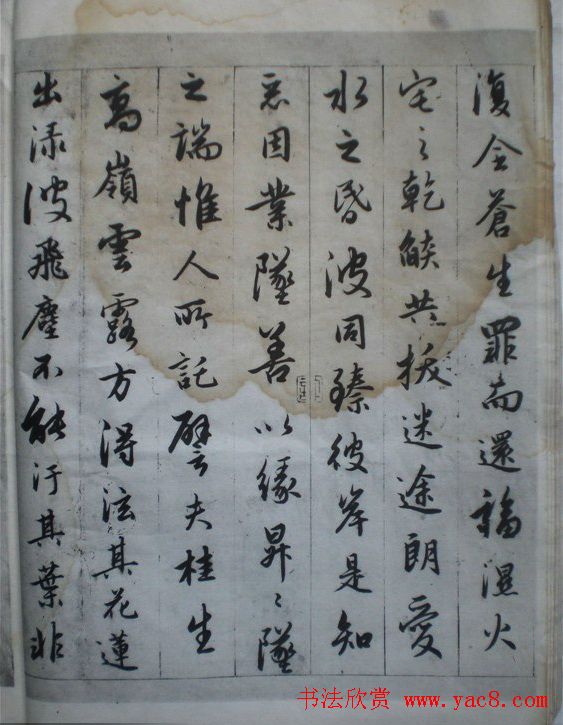 復全蒼生罪而還福濕火
宅之乾燄共拔迷途朗愛
水之昏波同臻彼岸是知
惡因業墜善以緣昇〻墜
之端惟人所託譬夫桂生
高嶺雲露方得泫其花蓮
出渌波飛塵不能汙其葉非
书法欣赏 www.yac8.com